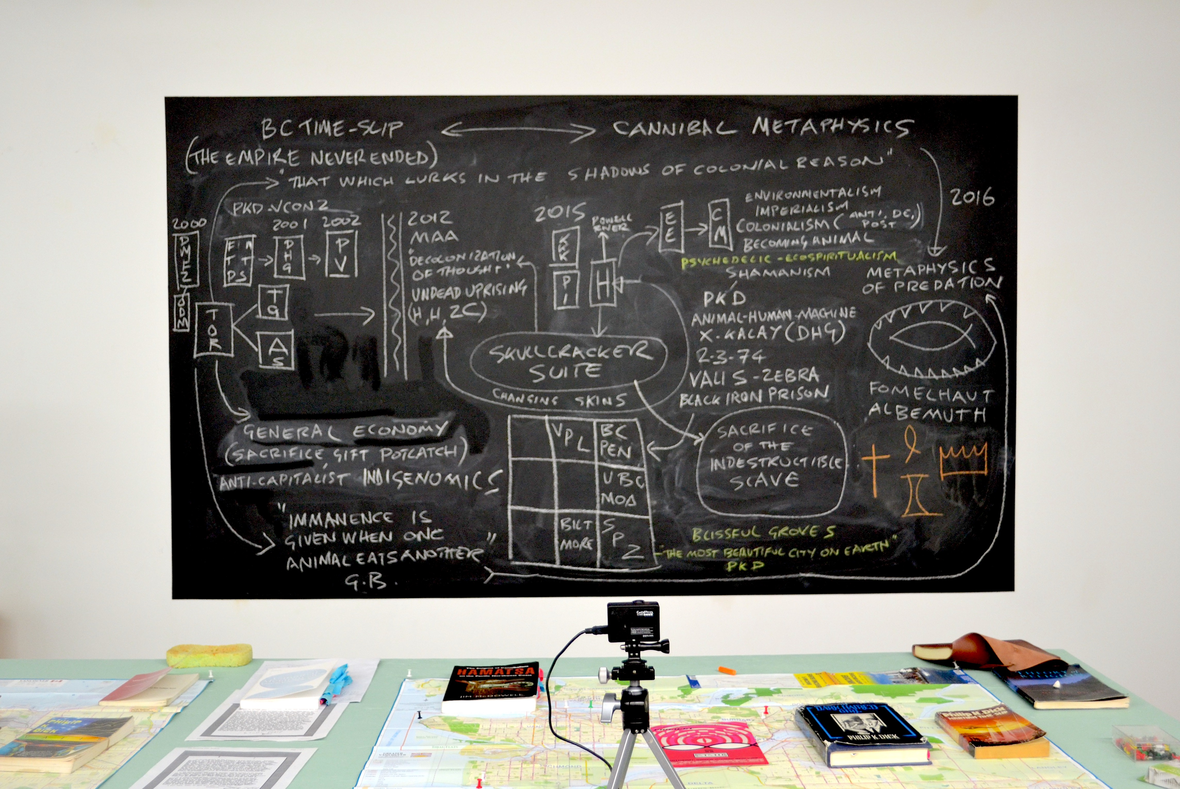 BC TIME-SLIP
CANNIBAL METAPHYSICS
(THE EMPIRE NEVER ENDED)
"THAT WHICH LURKS IN THE SHADOWS OF COLONIAL REASON"
PKD-VCON2
2000
2001
2002
DHG
PV
TOR
TG
AS
2012
MAA
DECOLONIZATION
OF THOUGHT.
UNDEAD UPRISING
(H, H, ZC)
2015
POWELL
RIVER
PI
H
EE
CM
ENVIRONMENTALISM
IMPERIALISM
COLONIALISM (ANTI, DE, POST)
BECOMING ANIMAL
PSYCHEDELIC-ECOSPIRITUALISM
SHAMANISM
2016
METAPHYSICS
OF PREDATION
PKD
ANIMAL-HUMAN-MACHINE
X. KALAY (DHG)
2-3-74
VALIS-ZEBRA
BLACK IRON PRISON
FOMELHAUT
ALBEMUTH
SKULLCRACKER
SUITE
CHANGING SKINS
GENERAL ECONOMY
(SACRIFICE, GIFT POTLATCH)
ANTI-CAPITALIST INDIGENOMICS
"IMMANENCE IS
GIVEN WHEN ONE
ANIMAL EATS ANOTHER"
G.B.
VPL
BC
PEN
UBC
MOA
BILT
MORE
SPZ
SACRIFICE
OF THE
INDESTRUCTIBLE
SLAVE
BLISSFUL GROVES
"THE MOST BEAUTIFUL CITY ON EARTH"
PKD
HAMATSA
PHILIP K. DICK